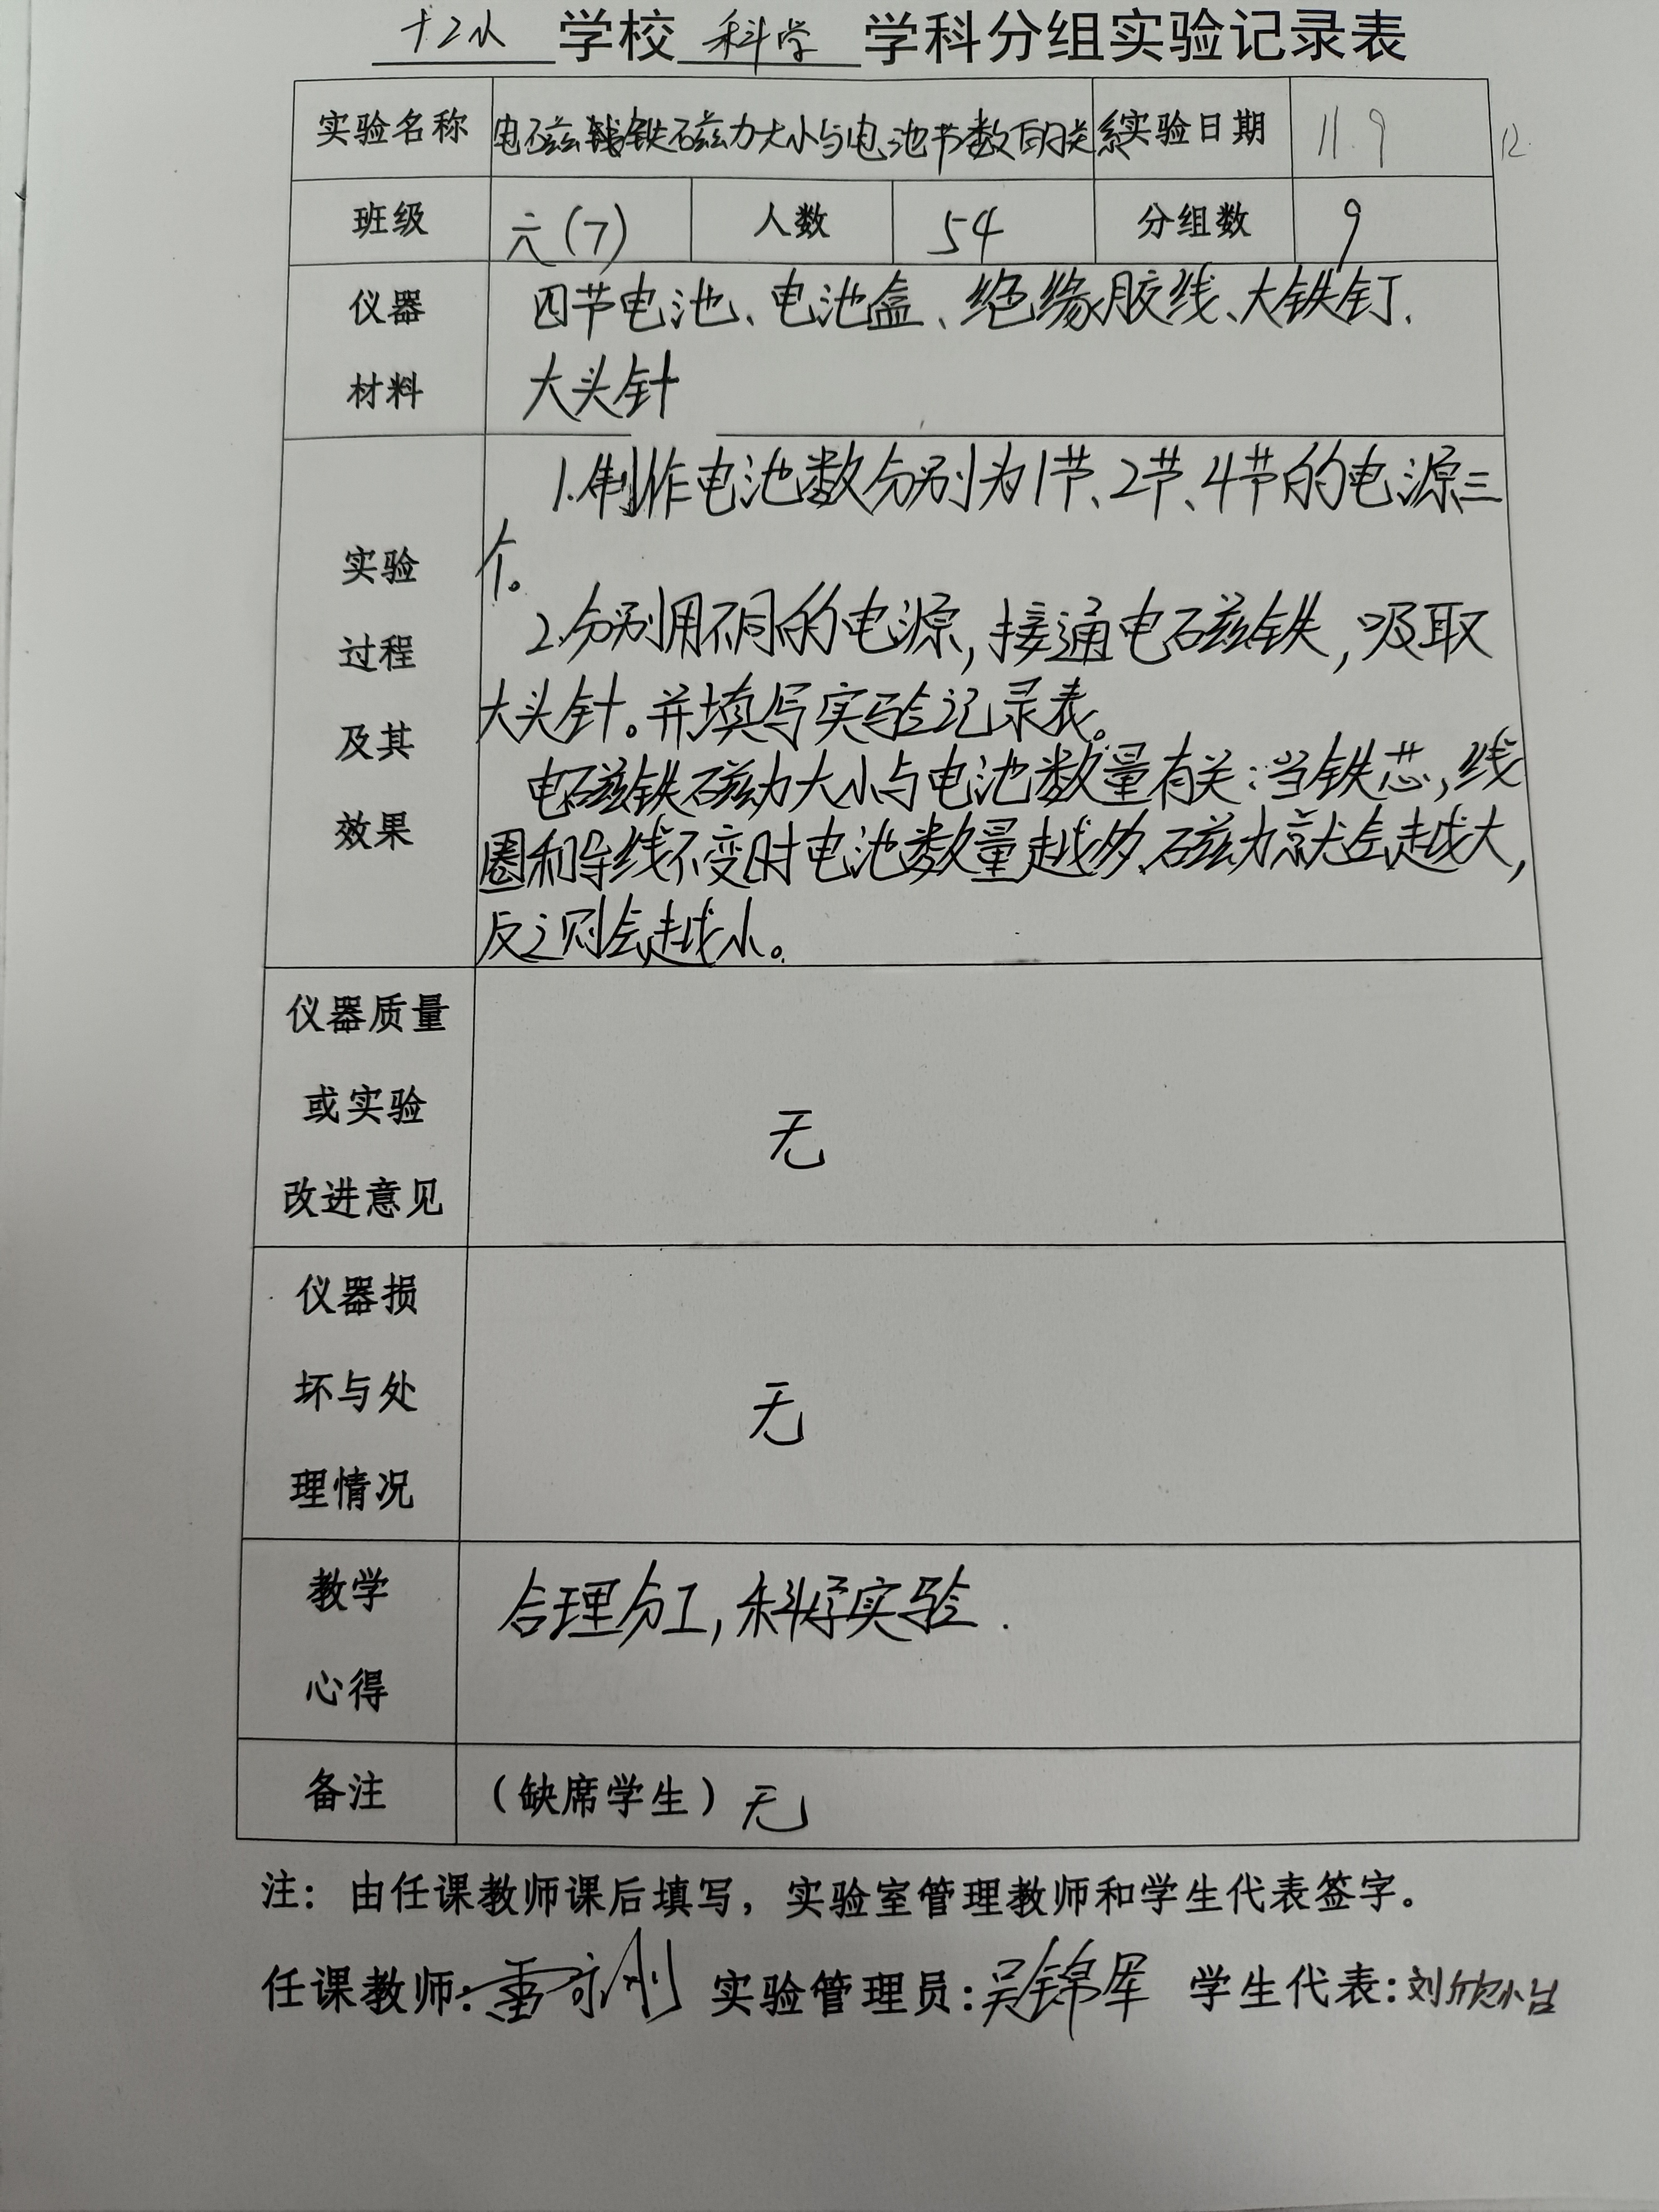 十2小 学校 科学 学科分组实验记录表
实验名称 电磁铁磁力大小与电池节数的关系 实验日期 11.9 12.
班级 六(7) 人数 54 分组数 9
仪器材料 四节电池、电池盒、绝缘胶线、大铁钉.
大头针
实验过程及其效果 1.制作电池数分别为1节、2节、4节的电源三
个。
2.分别用不同的电源,接通电磁铁,吸取
大头针。并填写实验记录表。
电磁铁磁力大小与电池数量有关:当铁芯,线
圈和导线不变时电池数量越多,磁力就会越大,
反之则会越小。
仪器质量或实验改进意见 无
仪器损坏与处理情况 无
教学心得 合理分工,科学实验.
备注 (缺席学生)无
注:由任课教师课后填写,实验室管理教师和学生代表签字。
任课教师: 实验管理员:吴锦军 学生代表:刘欣怡